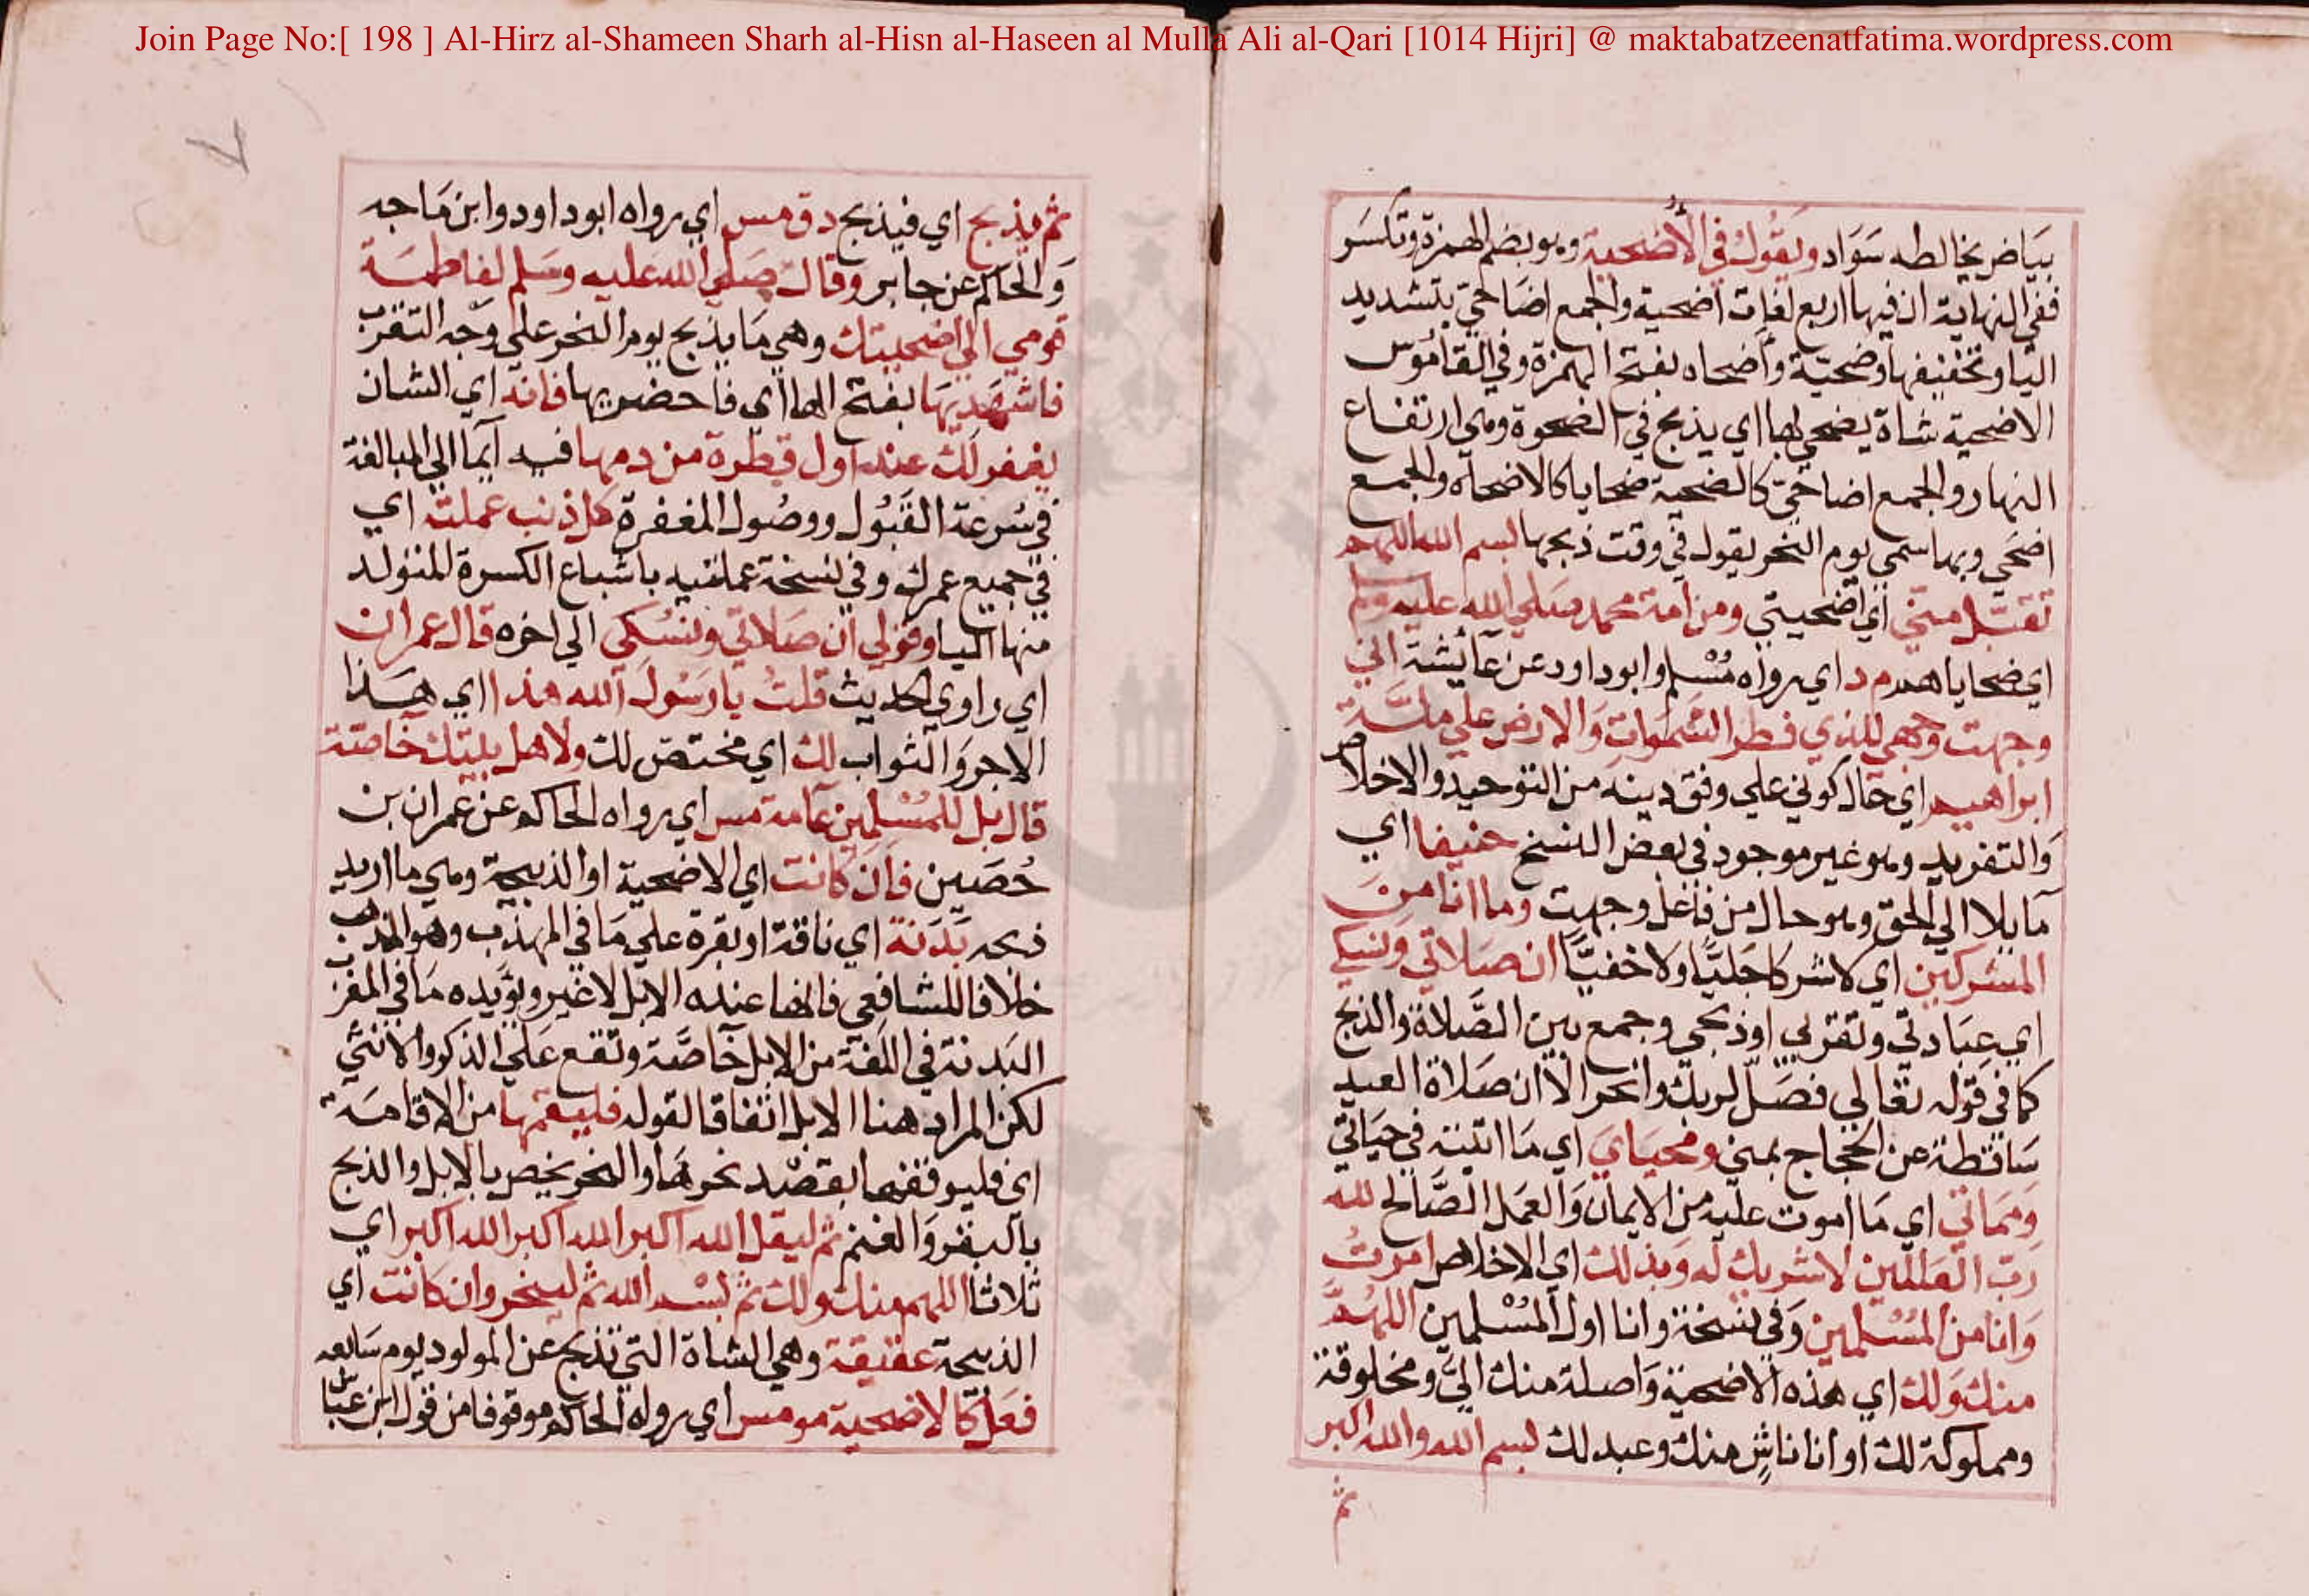 Join Page No:[ 198 ] Al-Hirz al-Shameen Sharh al-Hisn al-Haseen al Mulla Ali al-Qari [1014 Hijri] @ maktabatzeenatfatima.wordpress.com
بيَاض يخالطه سَوَاد ويَقُولُ في الأُضحية وهو بضم الهمزة وتكسَر
ففي النهاية ان فيها اربع لغات اضحية والجمع اضَاحيّ بتشديد
اليا وتخفيفها وضحيّة وأضحاه بفتح الهمزة وفي القامُوس
الاضحية شاة يضحي بها اي يذبح في الضحوة وهي ارتفاع
النهار والجمع اضاحيّ كالضحية ضحايا كالاضحاة والجمع
اضحَي وبها سمي يوم النحر يقول في وقت ذبحها بسم الله اللهم
تقبّل منّي اي اضحيتي ومن امة محمد صلي الله عليه وسلم
اي ضحاياهم م د اي رواه مُسْلم وابو داود عن عائشة اني
وجهت وجهي للذي فطر السَّمَوات وَالارض علي ملّة
ابراهيم اي حَال كوني علي وفق دينه من التوحيد والاخلاص
وَالتفريد وهو غير موجود في بعض النسخ حنيفا اي
مَايلا الي الحق وهو حال من فاعل وجهت وما انا منَ
المشركين اي لا شركا جَليَّا ولا خفيَّا ان صَلاتي وَنسكي
اي عبَادتي وتقربي او ذبحي وجمع بين الصَّلاة والذبح
كما في قوله تعَالي فصَلّ لربك وانحر الا ان صَلاة العيد
سَاقطة عن الحجاج بمني ومحيَايَ اي مَا اتيته في حيَاتي
وَمَمَاتي اي مَا اموت عليه من الايمان وَالعمَل الصَّالح لله
رَبّ العَالمين لا شريك له وَبذلك اي الاخلاص امرتُ
وَانا من المُسْلمين وَفي نسخة وانا اول المُسْلمين اللهُمَّ
منك وَلك اي هذه الاضحية وَاصلة منك اليَّ ومخلوقة
ومملوكة لك او انا ناشٍ منك وعبد لك بسم الله والله اكبر
ثم
ثم يذبح اي فيذبح د ق مس اي رواه ابو داود وابن مَاجه
وَالحاكم عن جابر وقال صَلي الله عليه وسَلم لفاطمَة
قومي الي اضحيتك وهي مَا يذبح يوم النحر علي وَجه التقرب
فاشهَديهَا بفتح الها اي فاحضريها فانه اي الشان
يغفر لَك عند اول قطرة من دمها فيه ايما الي المبالغة
في سُرعة القَبُول ووصُول المغفرة كل ذنب عملت اي
في جميع عمرك وفي نسخة عملتيه باشباع الكسرة المتولد
منها اليا وقولي ان صَلاتي ونسُكي الي اخره قال عمران
اي راوي الحديث قلتُ يا رَسُولَ الله هذا اي هذا
الاجر وَالثواب لك اي مختصّ لك ولاهل بيتك خاصّة
قال بل للمُسْلمين عَامة مس اي رواه الحاكم عن عمران بن
حُصَين فان كانت اي الاضحية او الذبيحة وهي ما اريد
ذبحه بَدَنة اي ناقة او بقرة علي مَا في المهذّب وهو المذهب
خلافا للشافعي فانها عنده الابل لا غير ويؤيده مَا في المغرب
البَدنة في اللغة من الابل خاصَّة وتقع عَلي الذكر والانثي
لكن المراد هنا الابل اتفاقا لقوله فليقمها من الاقامَة
اي فليوقفها بقصْد نحرهَا والنحر يخص بالابل والذبح
بالبقر وَالغنم ثم ليقل الله اكبر الله اكبر الله اكبر اي
ثلاثا اللهم منك ولك ثم بسْم الله ثم لينحر وان كانت اي
الذبيحة عقيقة وهي الشاة التي تذبح عن المولود يوم سَابعه
فعَل كالاضحية مو مس اي رواه الحاكم موقوفا من قول ابن عباس